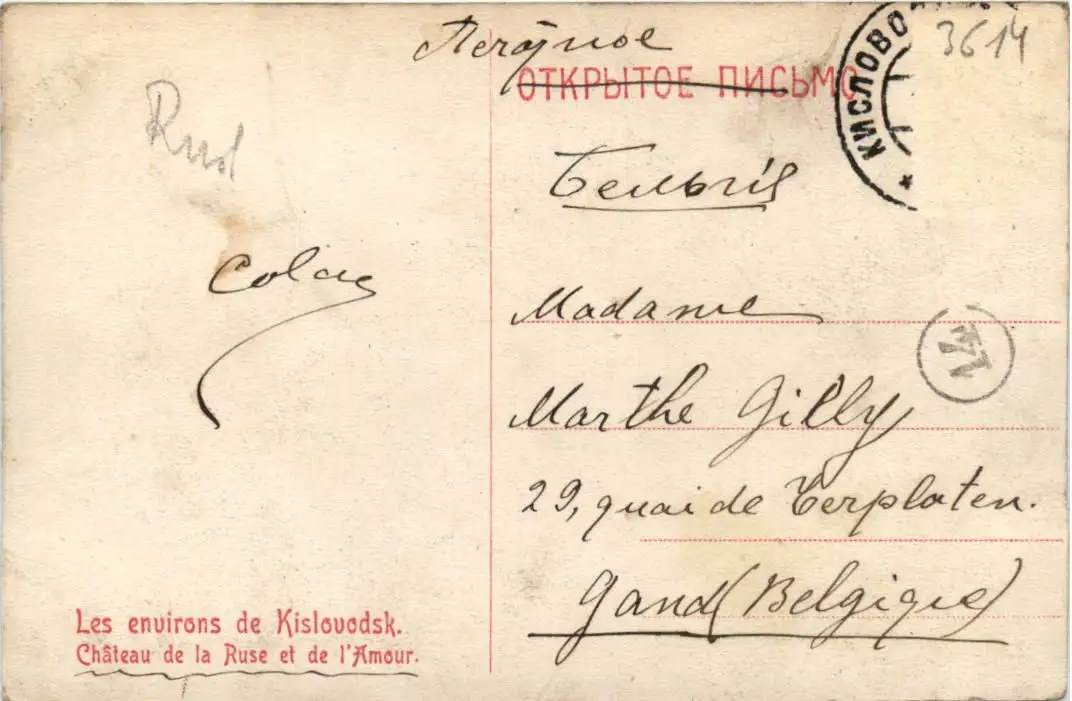 Печатное
3614
ОТКРЫТОЕ ПИСЬМО
КИСЛОВО
Бельгія
Madame
Marthe Gilly
29, quai de Terplaten.
Gand (Belgique)
Les environs de Kislovodsk.
Château de la Ruse et de l'Amour.